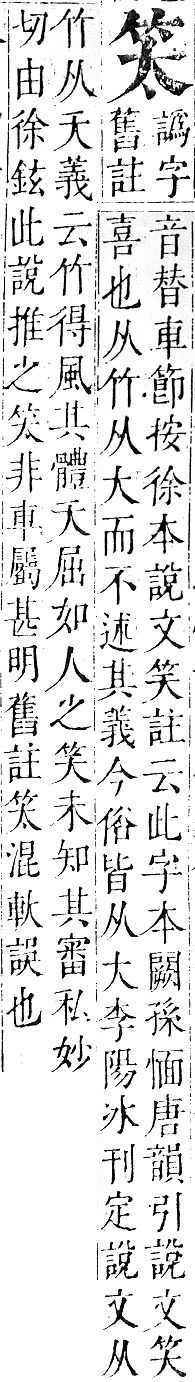 𥬇
譌字
舊註
音替車節按徐本說文笑註云此字本闕孫愐唐韻引說文笑
喜也从竹从大而不述其義今俗皆从大李陽冰刊定說文从
竹从夭義云竹得風其體夭屈如人之笑未知其審私妙
切由徐鉉此說推之𥬇非車屬甚明舊註𥬇混軑誤也